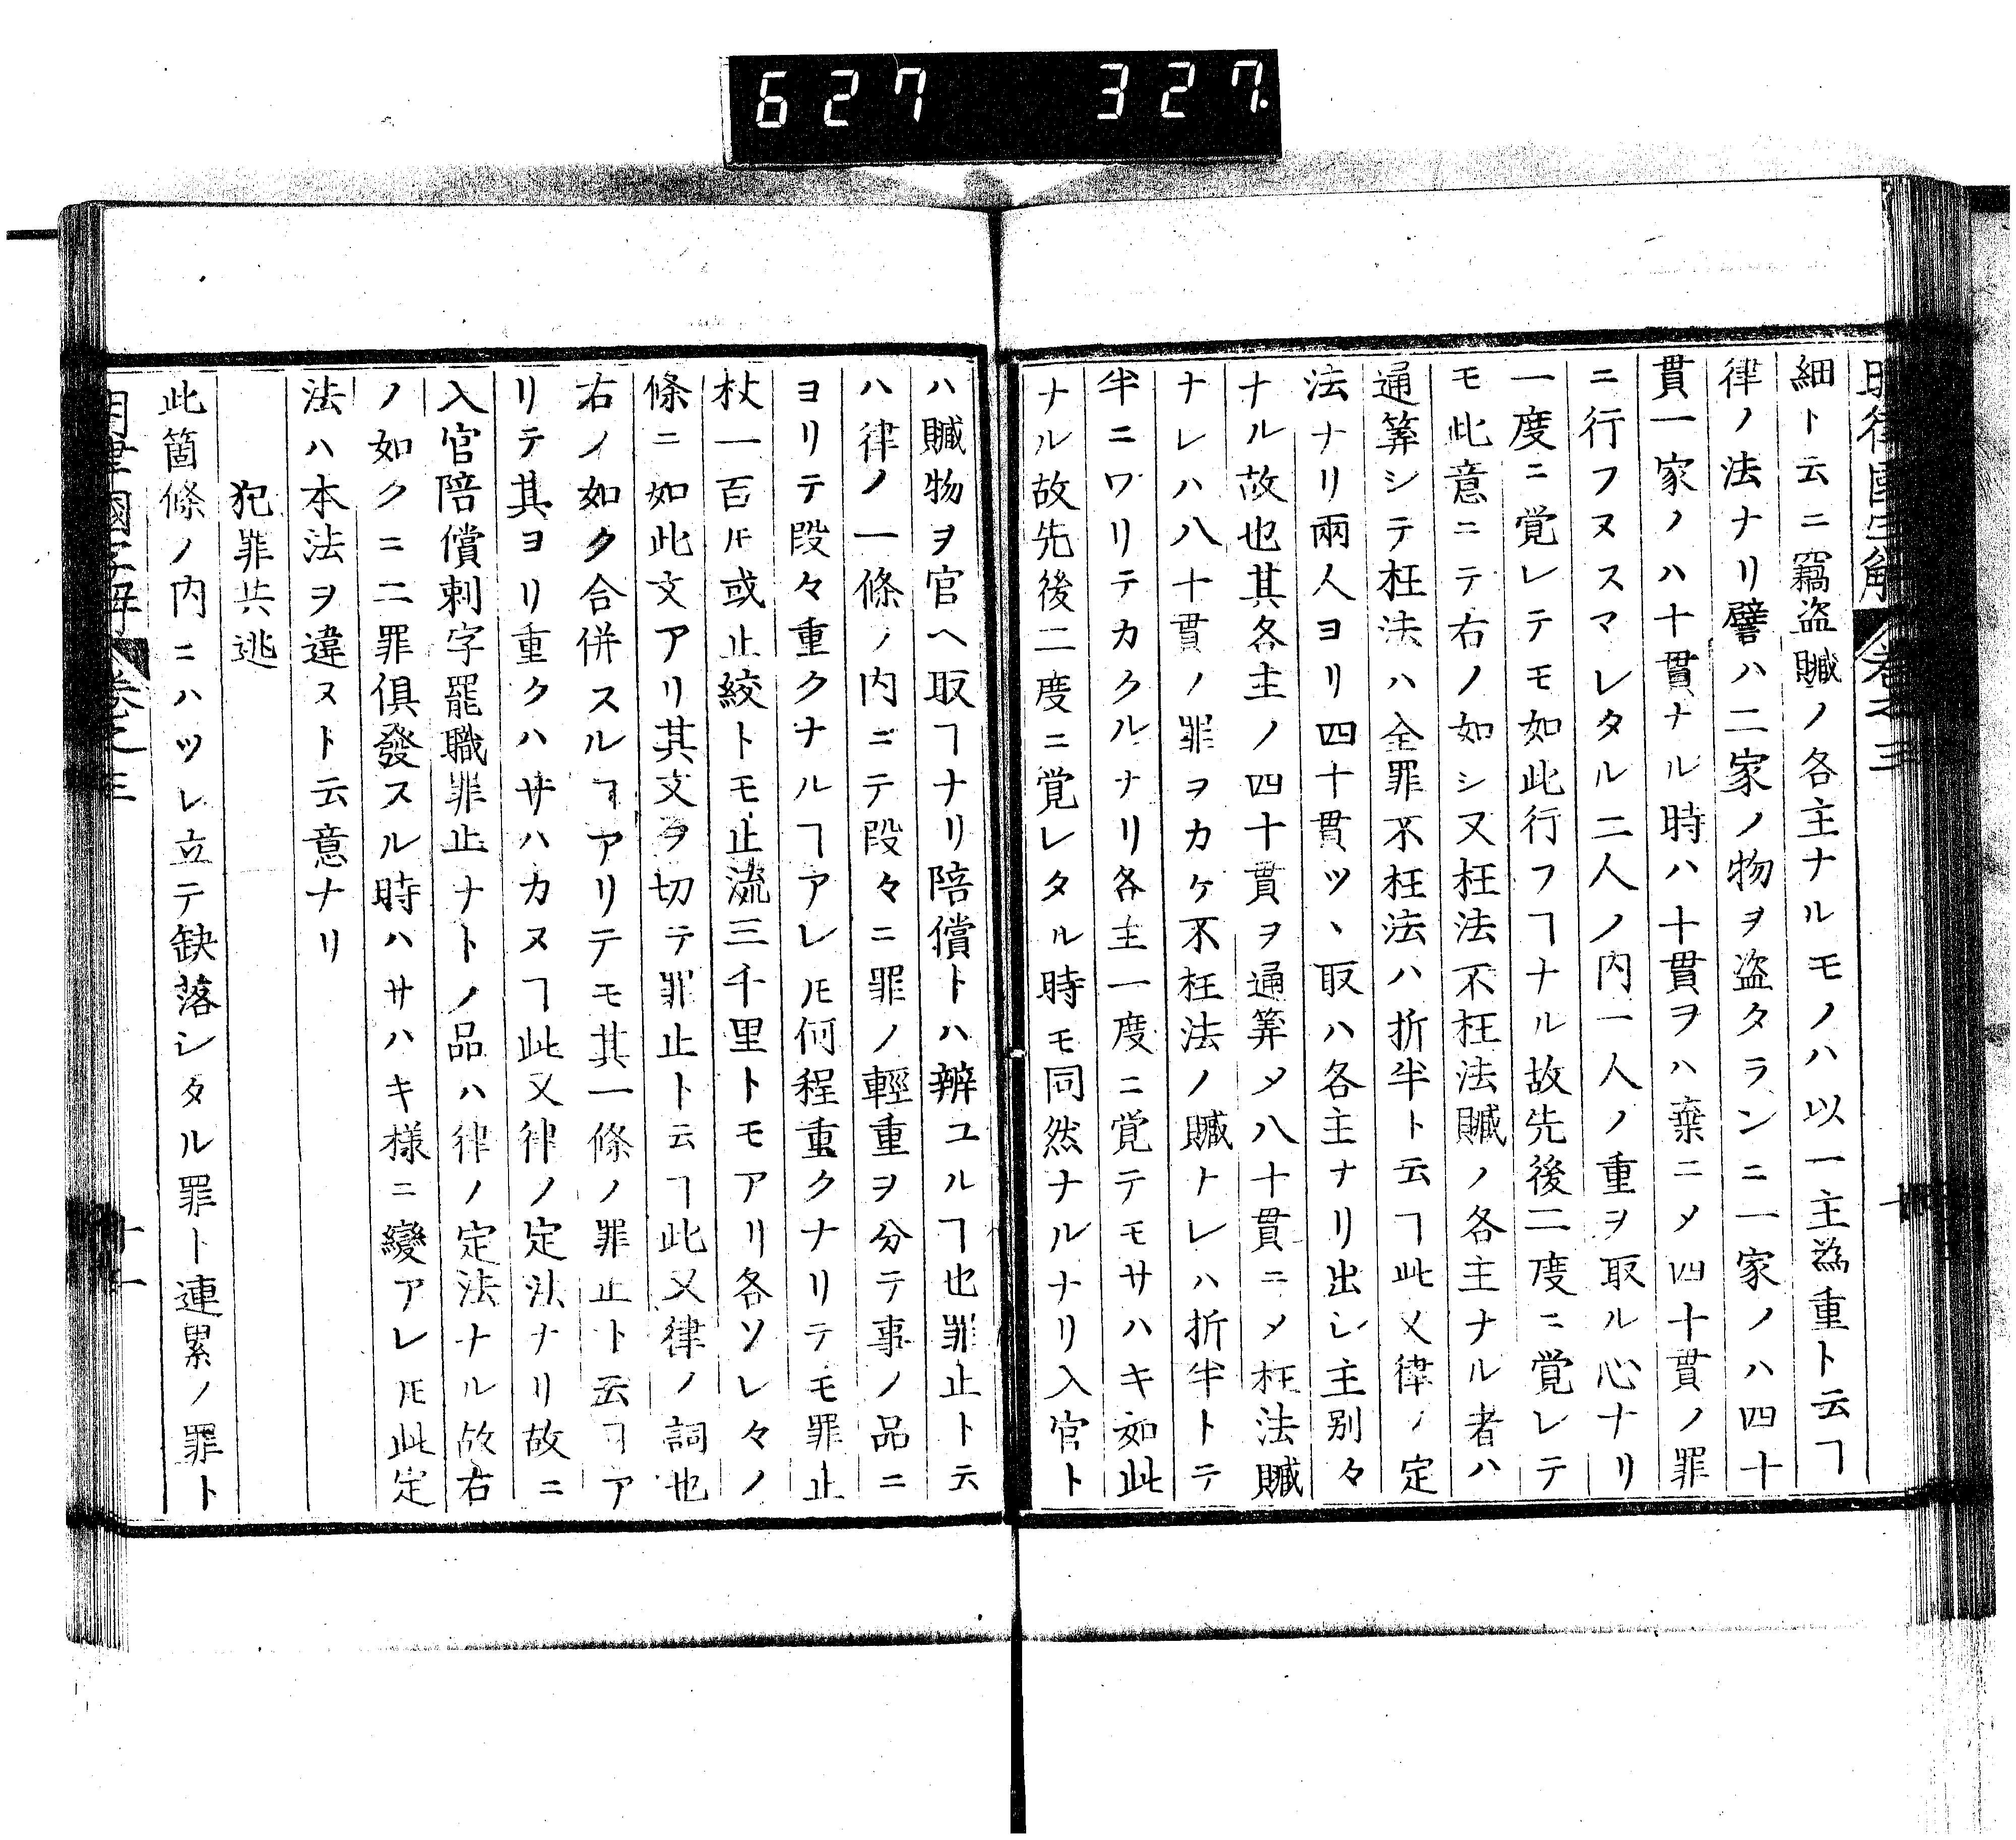 627 327
明律國字解 卷之三 十
細ト云ニ竊盗贓ノ各主ナルモノハ以一主為重ト云ヿ
律ノ法ナリ譬ハ二家ノ物ヲ盗タランニ一家ノハ四十
貫一家ノハ十貫ナル時ハ十貫ヲハ棄ニメ四十貫ノ罪
ニ行フヌスマレタル二人ノ内一人ノ重ヲ取ル心ナリ
一度ニ覚レテモ如此行フヿナル故先後二度ニ覚レテ
モ此意ニテ右ノ如シ又枉法不枉法贓ノ各主ナル者ハ
通筭シテ枉法ハ全罪不枉法ハ折半ト云ヿ此又律ノ定
法ナリ兩人ヨリ四十貫ツヽ取ハ各主ナリ出シ主別々
ナル故也其各主ノ四十貫ヲ通筭メ八十貫ニメ枉法贓
ナレハ八十貫ノ罪ヲカケ不枉法ノ贓トレハ折半トテ
半ニワリテカクルナリ各主一度ニ覚テモサハキ如此
ナル故先後二度ニ覚レタル時モ同然ナルナリ入官ト
ハ贓物ヲ官ヘ取ヿナリ陪償トハ辨ユルヿ也罪止ト云
ハ律ノ一條ノ内ニテ段々ニ罪ノ輕重ヲ分テ事ノ品ニ
ヨリテ段々重クナルヿアレ𪜈何程重クナリテモ罪止
杖一百𪜈或止絞トモ止流三千里トモアリ各ソレ々ノ
條ニ如此文アリ其文ヲ切テ罪止ト云ヿ此又律ノ詞也
右ノ如ク合併スルヿアリテモ其一條ノ罪止ト云ヿア
リテ其ヨリ重クハサハカヌヿ此又律ノ定法ナリ故ニ
入官陪償刺字罷職罪止ナトノ品ハ律ノ定法ナル故右
ノ如クニ二罪俱發スル時ハサハキ様ニ變アレ𪜈此定
法ハ本法ヲ違ヌト云意ナリ
犯罪共逃
此箇條ノ内ニハツレ立テ缺落シタル罪ト連累ノ罪ト
明律國字解 卷之三 十一